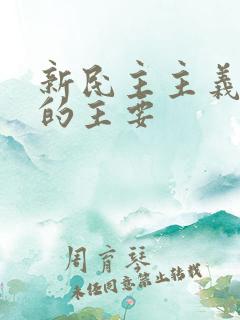 新民主主义
的王安
周育琴
未经同意禁止转载